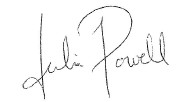 Julia Powell